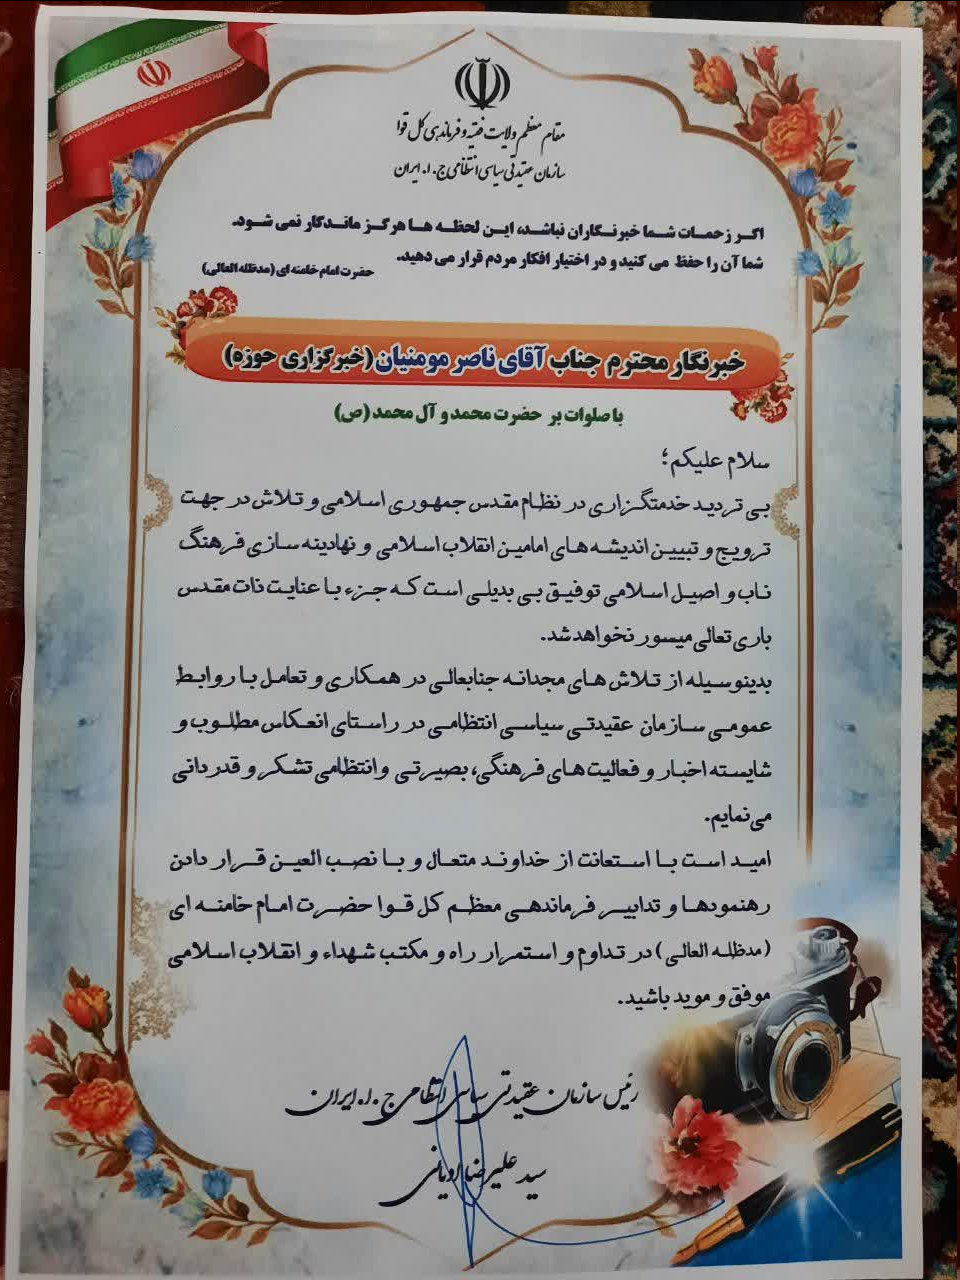 مقام معظم ولایت فقیه و فرماندهی کل قوا
سازمان عقیدتی سیاسی انتظامی ج.ا.ایران
اگر زحمات شما خبرنگاران نباشد، این لحظه ها هرگز ماندگار نمی شود.
شما آن را حفظ می کنید و در اختیار افکار مردم قرار می دهید.
حضرت امام خامنه ای (مدظله العالی)
خبرنگار محترم جناب آقای ناصر مومنیان (خبرگزاری حوزه)
با صلوات بر حضرت محمد و آل محمد (ص)
سلام علیکم؛
بی تردید خدمتگزاری در نظام مقدس جمهوری اسلامی و تلاش در جهت
ترویج و تبیین اندیشه های امامین انقلاب اسلامی و نهادینه سازی فرهنگ
ناب و اصیل اسلامی توفیق بی بدیلی است که جزء با عنایت ذات مقدس
باری تعالی میسور نخواهد شد.
بدینوسیله از تلاش های مجدانه جنابعالی در همکاری و تعامل با روابط
عمومی سازمان عقیدتی سیاسی انتظامی در راستای انعکاس مطلوب و
شایسته اخبار و فعالیت های فرهنگی، بصیرتی وانتظامی تشکر و قدردانی
می نمایم.
امید است با استعانت از خداوند متعال و با نصب العین قرار دادن
رهنمودها و تدابیر فرماندهی معظم کل قوا حضرت امام خامنه ای
(مدظله العالی) در تداوم و استمرار راه و مکتب شهداء و انقلاب اسلامی
موفق و موید باشید.
رئیس سازمان عقیدتی سیاسی انتظامی ج.ا.ایران
سید علیرضا ادیانی